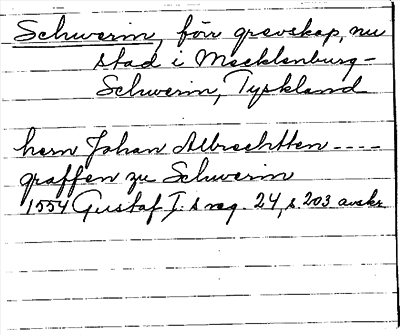 Schwerin, förr grevskap, nu
stad i Mecklenburg-
Schwerin, Tyskland
hern Johan Albrechtten ----
graffen zu Schwerin
1554 Gustaf I:s reg. 24, s. 203 avskr